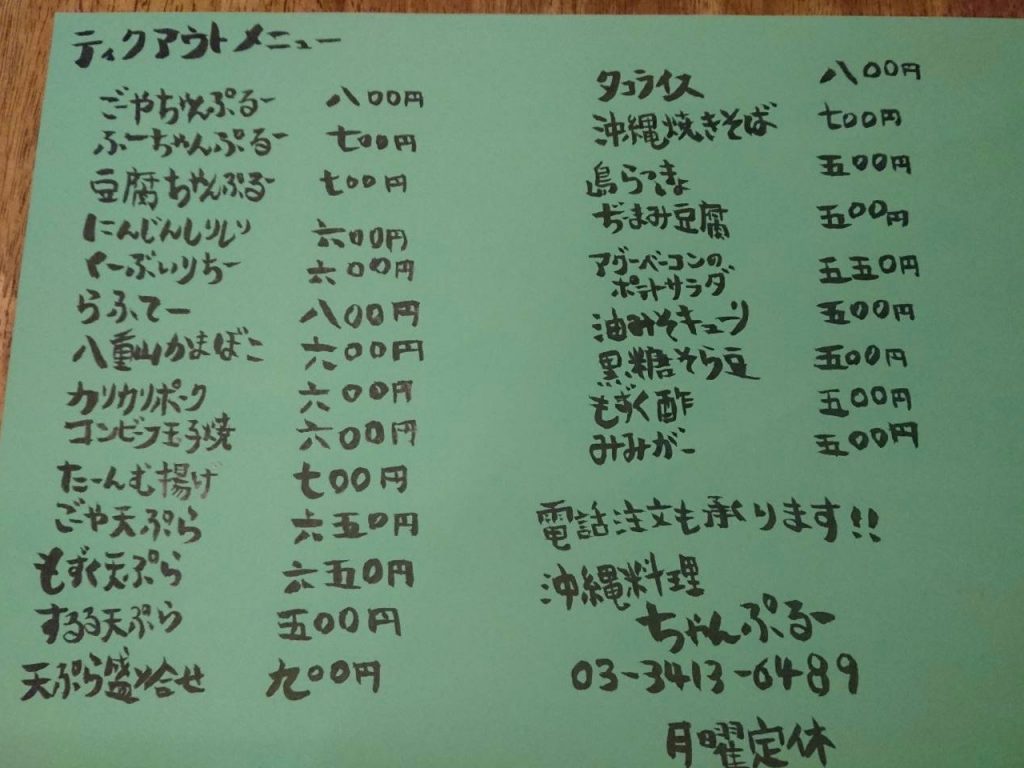 テイクアウトメニュー
ごやちゃんぷるー 八〇〇円
ふーちゃんぷるー 七〇〇円
豆腐ちゃんぷるー 七〇〇円
にんじんしりしり 六〇〇円
くーぶいりちー 六〇〇円
らふてー 八〇〇円
八重山かまぼこ 六〇〇円
カリカリポーク 六〇〇円
コンビーフ玉子焼 六〇〇円
たーんむ揚げ 七〇〇円
ごや天ぷら 六五〇円
もずく天ぷら 六五〇円
するる天ぷら 五〇〇円
天ぷら盛り合せ 九〇〇円
タコライス 八〇〇円
沖縄焼きそば 七〇〇円
島らっきょ 五〇〇円
ぢまみ豆腐 五〇〇円
アグーベーコンの
ポテトサラダ 五五〇円
油みそキューリ 五〇〇円
黒糖そら豆 五〇〇円
もずく酢 五〇〇円
みみがー 五〇〇円
電話注文も承ります!!
沖縄料理
ちゃんぷるー
03-3413-6489
月曜定休